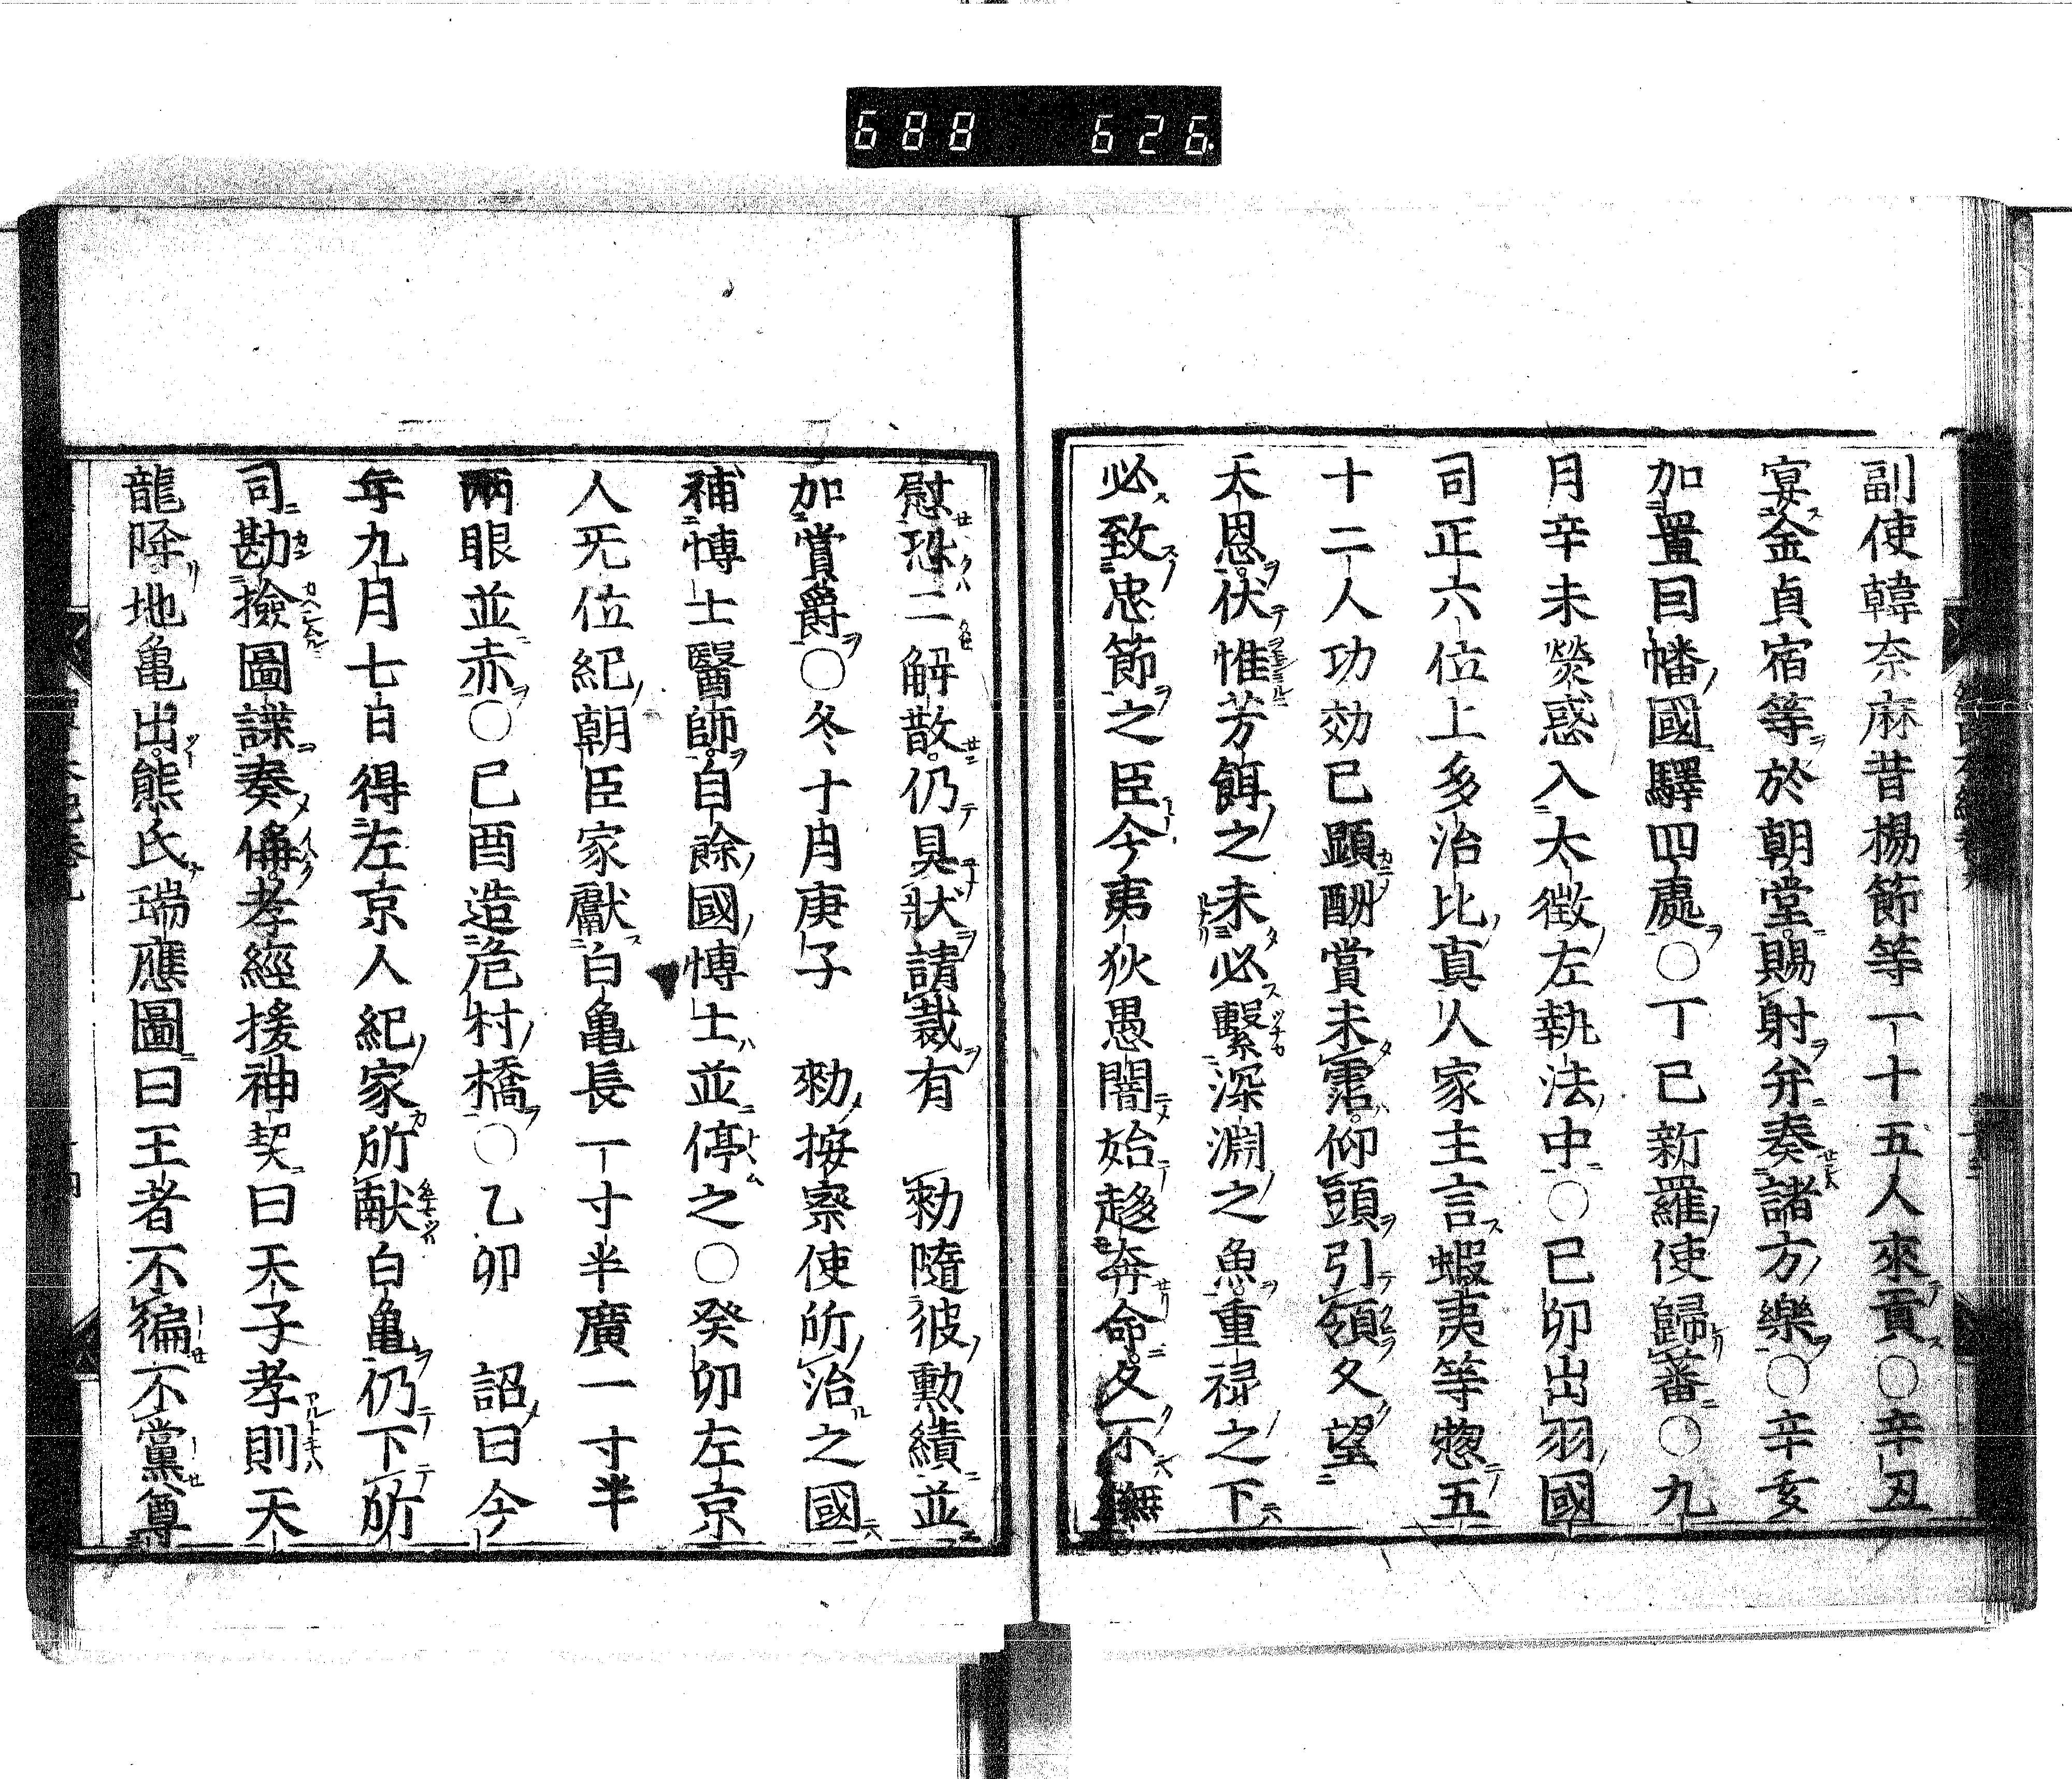 688 626
副使韓奈麻昔楊節等一十五人來貢〇辛丑
宴金貞宿等於朝堂賜射幷奏諸方樂〇辛亥
加置因幡國驛四處〇丁巳新羅使歸蕃〇九
月辛未熒惑入太徵左執法中〇己卯出羽國
司正六位上多治比真人家主言蝦夷等惣五
十二人功効已顯酬賞未霑仰頭引領久望
天恩伏惟芳餌之未必繫深淵之魚重禄之下
必致忠節之臣今夷狄愚闇始趍奔命久不撫
慰恐二解散仍具狀請裁有　勅隨彼勲績並
加賞爵〇冬十月庚子　勅按察使所治之國
補博士醫師自餘國博士並停之〇癸卯左京
人无位紀朝臣家獻白亀長一寸半廣一寸半
兩眼並赤〇己酉造危村橋〇乙卯　詔曰今
年九月七日得左京人紀家所献白亀仍下所
司勘撿圖諜奏偁孝經援神契曰天子孝則天
龍降地亀出熊氏瑞應圖曰王者不徧不黨尊